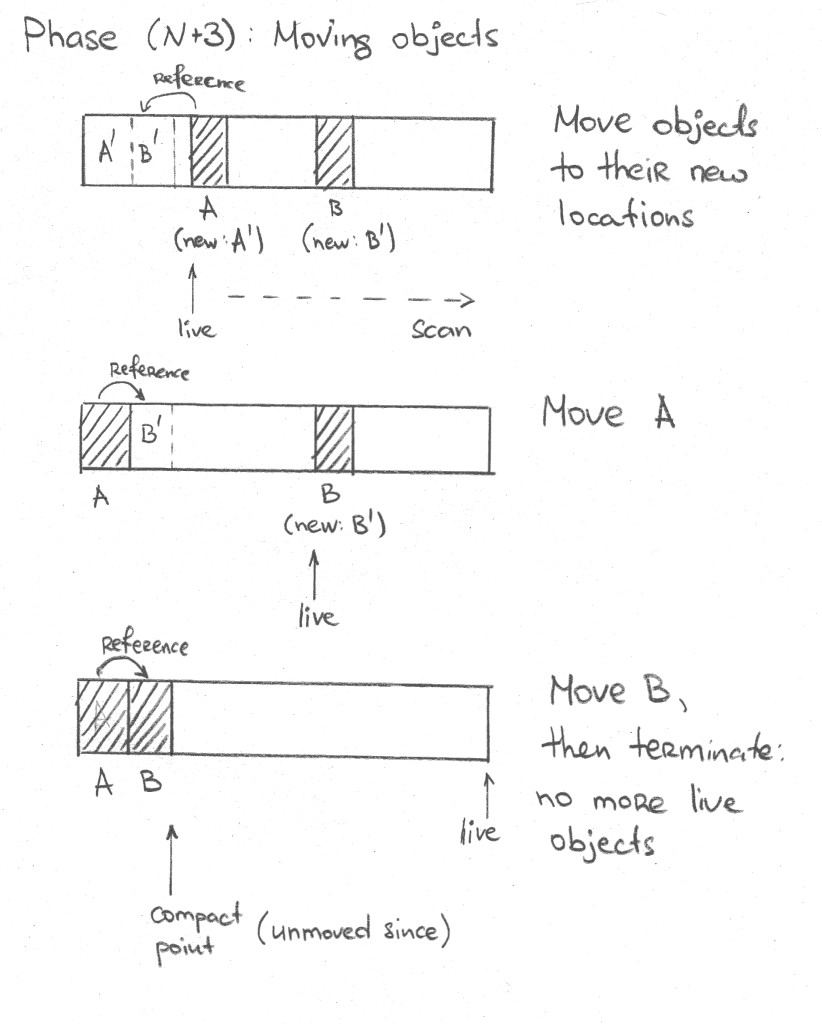 Phase (N+3): Moving objects
Reference
A' B'
A
(new: A')
B
(new: B')
live
Scan
Move objects
to their new
locations
Reference
B'
A
B
(new: B')
live
Move A
Reference
A
A B
live
compact
point
(unmoved since)
Move B,
then terminate:
no more live
objects